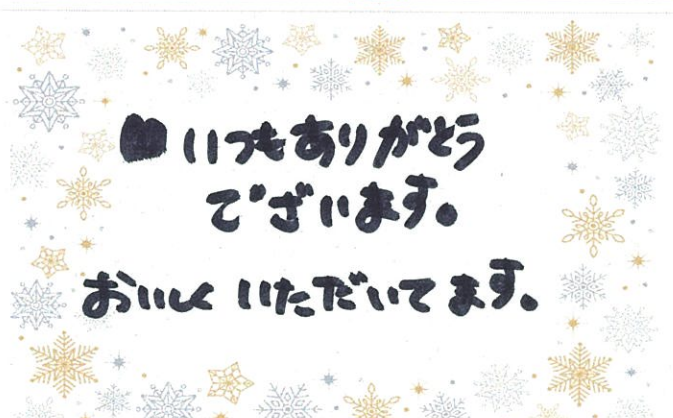 ♥いつもありがとう
ございます。
おいしくいただいてます。